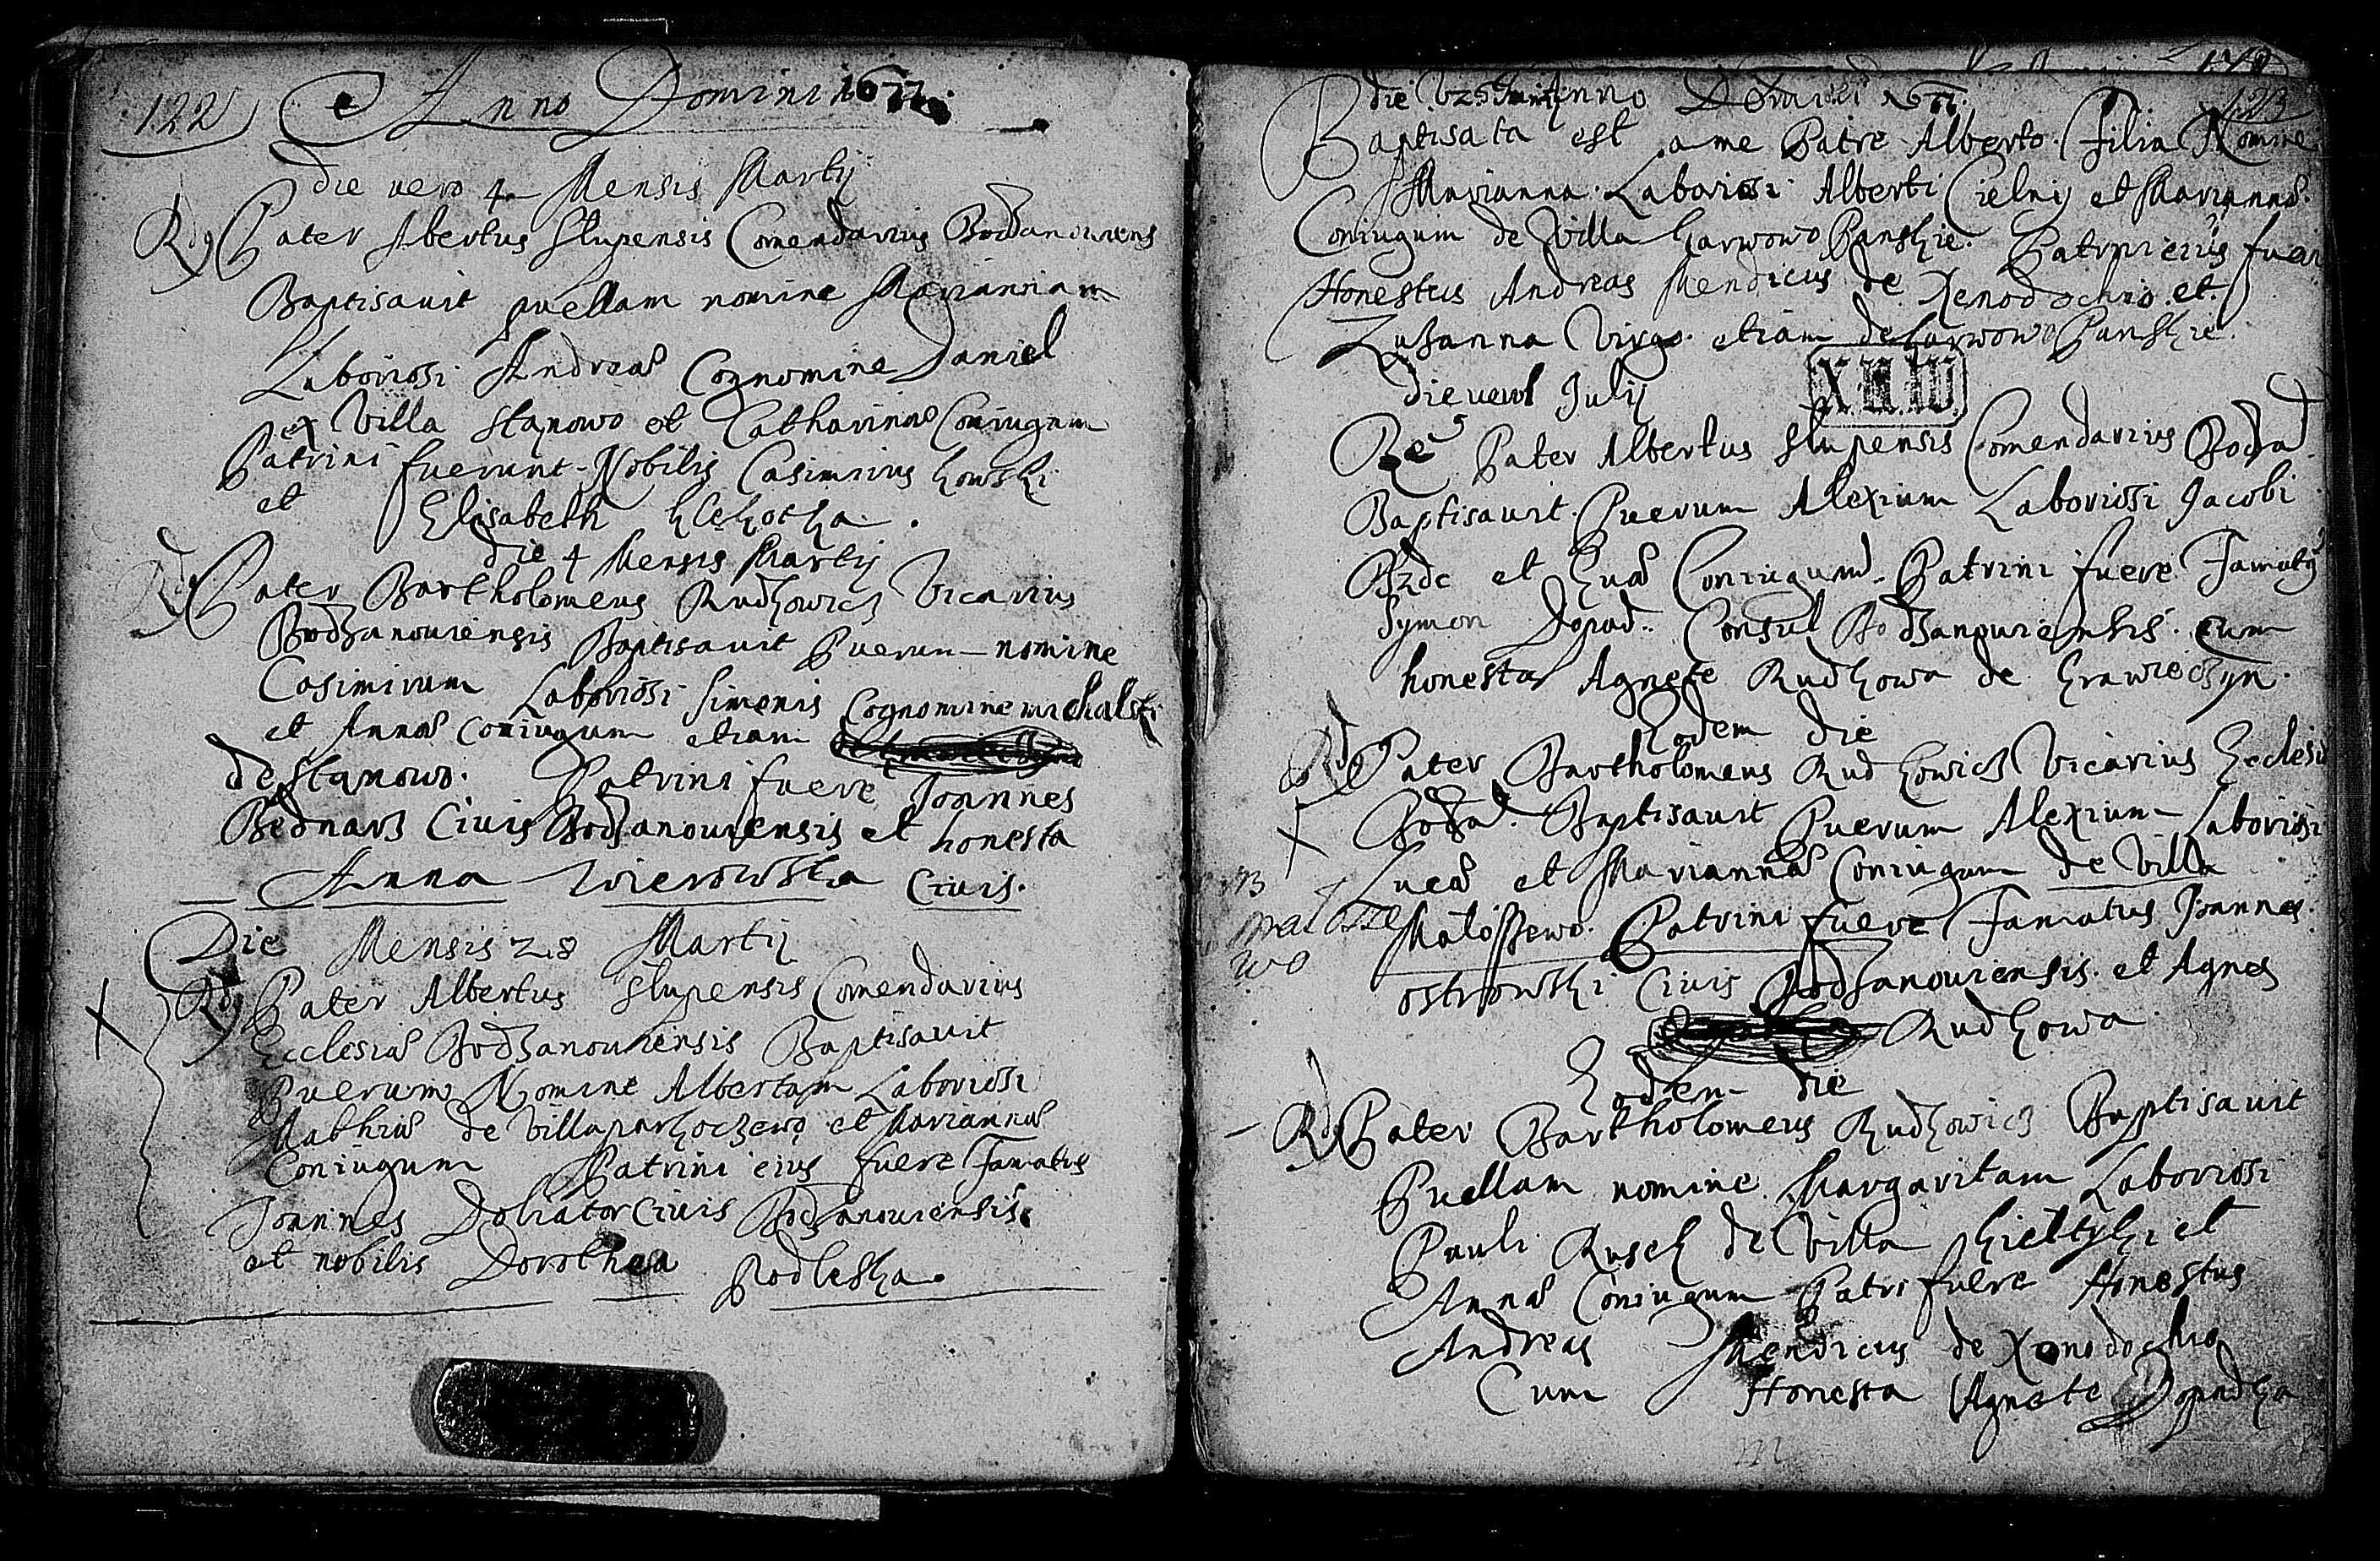 122
Anno Domini 1677
die vero 4 Mensis Martij
Rdg Pater Albertus Slupensis Comendarius Bodzanouiens
Baptisauit puellam nomine Mariannam
Laboriosi Andreæ Cognomine Daniel
ex Villa Stanowo et Catharinæ Coniugum
Patrini fuerunt Nobilis Casimirus
et Elisabeth
die 4 Mensis Martij
Rdg Pater Bartholomeus Rudkowicz Vicarius
Bodzanouiensis Baptisauit Puerum nomine
Casimirum Laboriosi Simonis Cognomine michalski
et Annæ Coniugum etiam
de Stanowo. Patrini fuere Joannes
Bednarz Ciuis Bodzanouiensis et honesta
Anna Wierowska Ciuis.
Die Mensis 28 Martij
Rdg Pater Albertus Slupensis Comendarius
Ecclesiæ Bodzanouiensis Baptisauit
Puerum Nomine Albertum Laboriosi
Mathiæ de Villa parkoczewo et Mariannæ
Coniugum Patrini eius fuere Famatus
Joannes Doliator Ciuis Bodzanouiensis
et nobilis Dorothea Podleska.
123
die Anno Domini 1677.
Baptisata est a me Patre Alberto Filia Nomine
Marianna Laboriosi Alberti Cielni et Mariannæ
Coniugum de Villa Garwowo Panskie. Patrini eius fuer
Honestus Andreas Mendicus de Xenodochio et
Zusanna Virgo etiam de Garwowo Panskie.
die vero 1 Julij
Rdg Pater Albertus Slupensis Comendarius Bodzad
Baptisauit Puerum Alexium Laboriosi Jacobi
Bzdc et Euæ Coniugum. Patrini fuere Famatg
Symon Dopad. Consul Bodzanouiensis cum
honesta Agnete Rudkowa de Krawieczyn.
Eodem die
Rdg Pater Bartholomeus Rudkowicz Vicarius Ecclesiæ
Bodzad. Baptisauit Puerum Alexium Laboriosi
Lucæ et Mariannæ Coniugum de Villa
z
malosze
wo
Maloszewo. Patrini fuere Famatus Joannes
ostrowski Ciuis Bodzanouiensis et Agnes
Rudkowa
Eodem die
Rdg Pater Bartholomeus Rudkowicz Baptisauit
Puellam nomine Margaritam Laboriosi
Pauli Rusek de Villa Kieltyki et
Annæ Coniugum Patri fuere Honestus
Andreas Mendicus de Xenodochio
Cum Honesta Agnete Dopadka